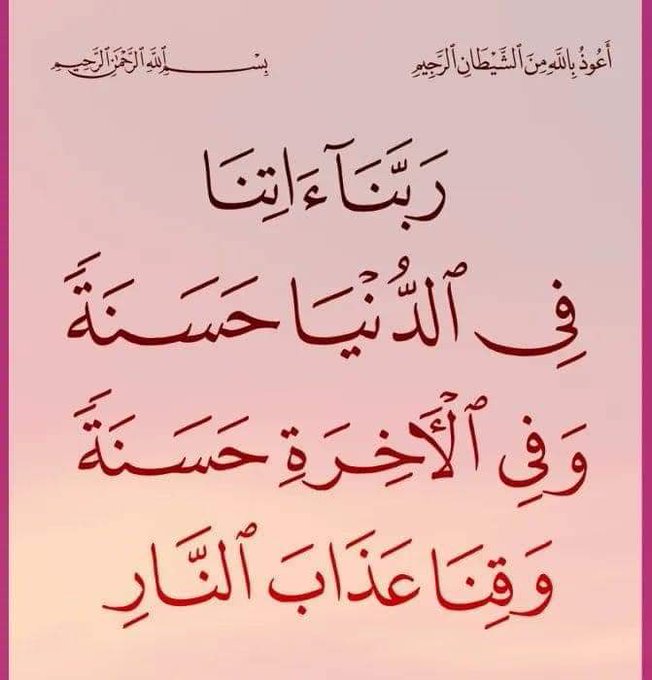 أَعُوذُ بِاللَّهِ مِنَ ٱلشَّيْطَانِ ٱلرَّجِيمِ
بِسْمِ ٱللَّهِ ٱلرَّحْمَٰنِ ٱلرَّحِيمِ
رَبَّنَآ ءَاتِنَا
فِى ٱلدُّنْيَا حَسَنَةً
وَفِى ٱلْأَخِرَةِ حَسَنَةً
وَقِنَا عَذَابَ ٱلنَّارِ